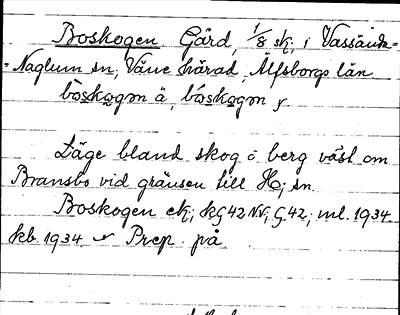 Boskogen Gård, 1/8 sk, i Vassända-
-Naglum sn, Väne härad, Älfsborgs län
bòskωgɘn ä, bóskωgɘn y
Läge bland skog o berg väst om
Bransbo vid gränsen till H; sn.
Boskogen ek; kG42NV; G.42; ml. 1934
kb. 1934. Prep. på